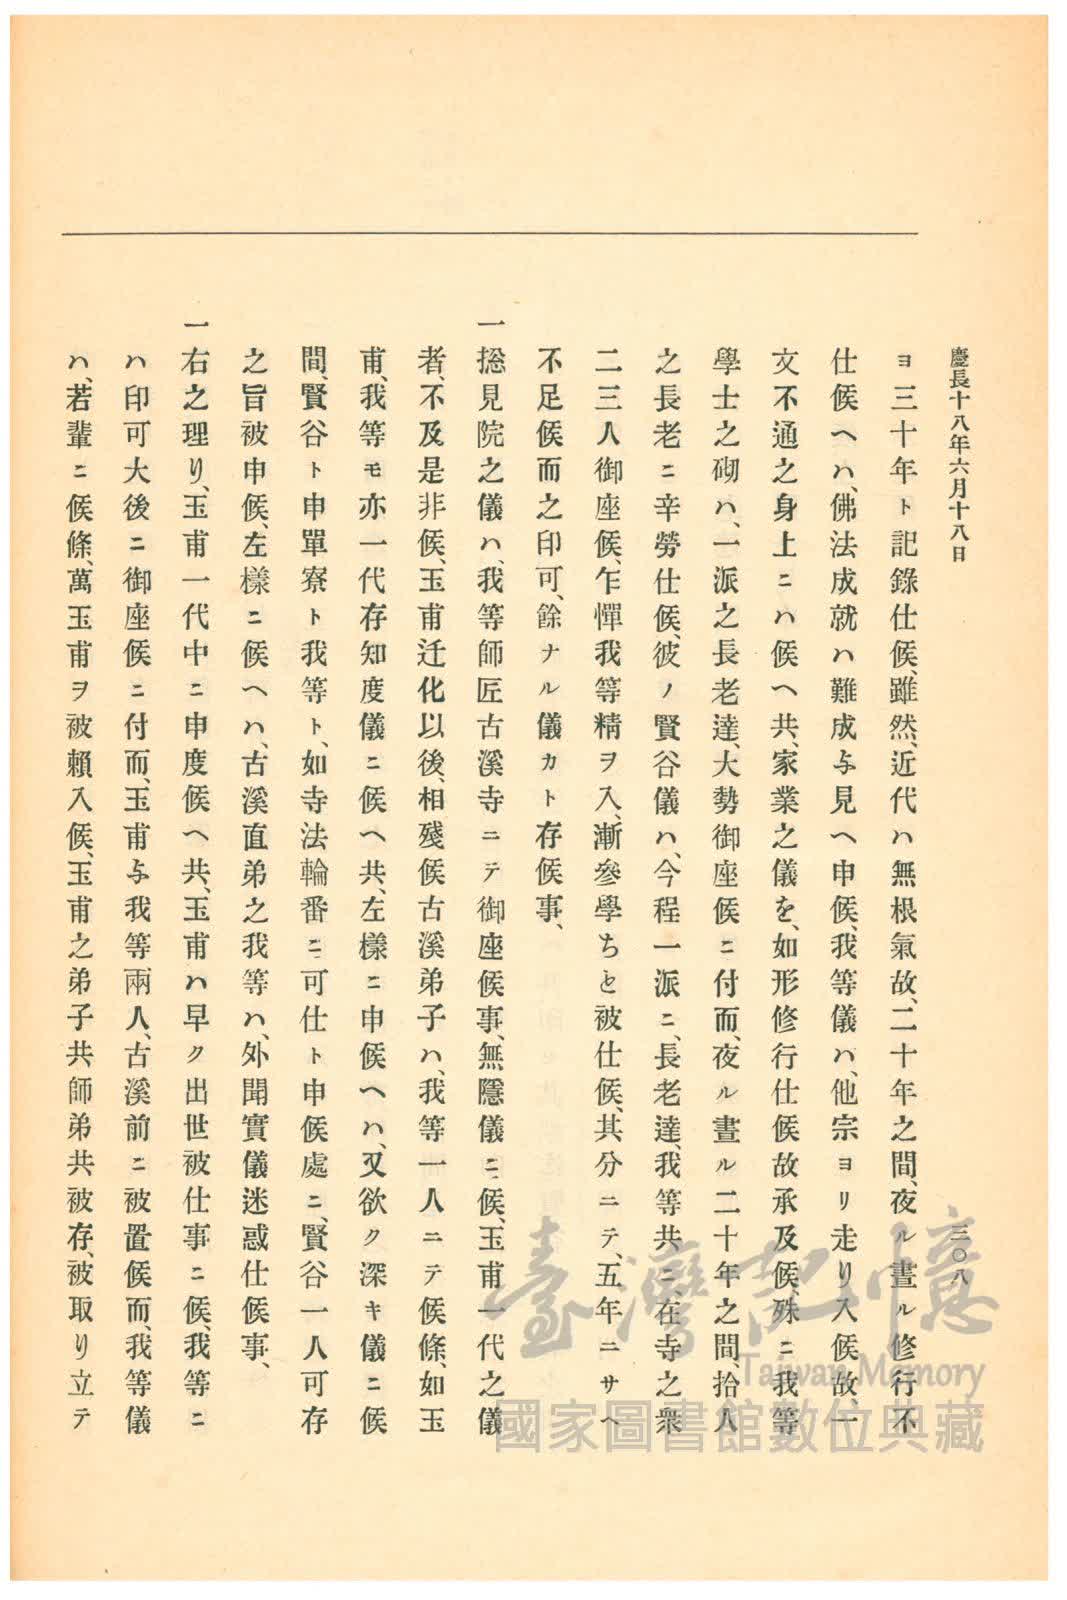 慶長十八年六月十八日
三〇八
ヨ三十年ト記錄仕候、雖然、近代ハ無根氣故、二十年之間、夜ル晝ル修行不
仕候ヘハ、佛法成就ハ難成与見ヘ申候、我等儀ハ、他宗ヨリ走リ入候故、一
文不通之身上ニハ候ヘ共、家業之儀を、如形修行仕候故承及候、殊ニ我等
學士之砌ハ、一派之長老達、大勢御座候ニ付而、夜ル晝ル二十年之間、拾人
之長老ニ辛勞仕候、彼ノ賢谷儀ハ、今程一派ニ、長老達、我等共ニ、在寺之衆
二三人御座候、乍憚我等精ヲ入、漸參學ちと被仕候、其分ニテ、五年ニサヘ
不足候而之印可、餘ナル儀カト存候事、
一捴見院之儀ハ、我等師匠古溪寺ニテ御座候事、無隱儀ニ候、玉甫一代之儀
者、不及是非候、玉甫迁化以後、相殘候古溪弟子ハ、我等一人ニテ候條、如玉
甫、我等モ亦一代存知度儀ニ候ヘ共、左樣ニ申候ヘハ、又欲ク深キ儀ニ候
間、賢谷ト申單寮ト我等ト、如寺法輪番ニ可仕ト申候處ニ、賢谷一人可存
之旨被申候、左樣ニ候ヘハ、古溪直弟之我等ハ、外聞實儀迷惑仕候事、
一右之理リ、玉甫一代中ニ申度候ヘ共、玉甫ハ早ク出世被仕事ニ候、我等ニ
ハ印可大後ニ御座候ニ付而、玉甫与我等兩人、古溪前ニ被置候而、我等儀
ハ、若輩ニ候條、萬玉甫ヲ被賴入候、玉甫之弟子共師弟共被存、被取リ立テ
臺灣記憶
Taiwan Memory
國家圖書館數位典藏